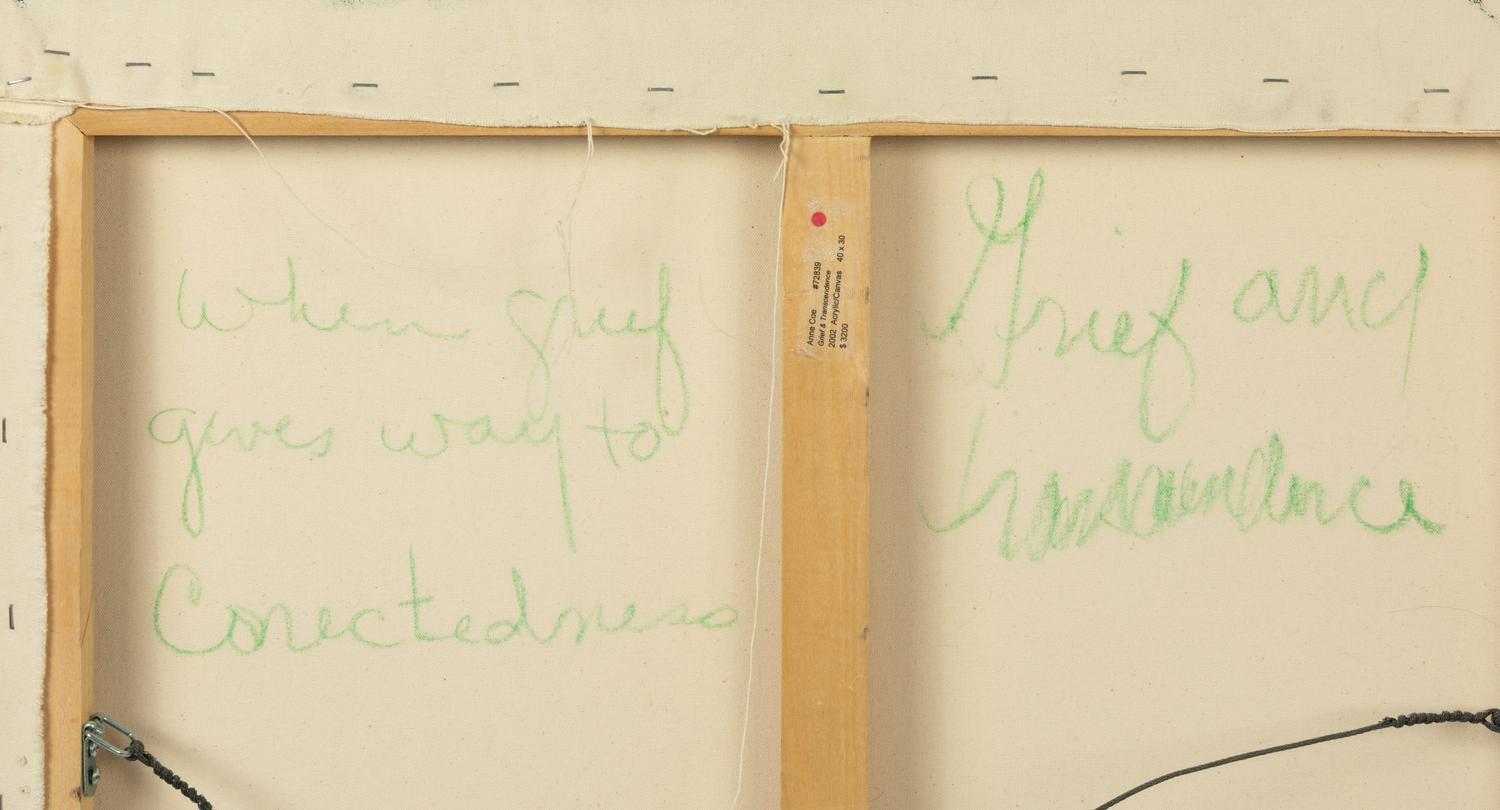 When grief
gives way to
Conectedness
Anne Coe #72839
Grief & Transcendence
2002 Acrylic/Canvas 40 x 30
$ 3200
Grief and
Transcendence